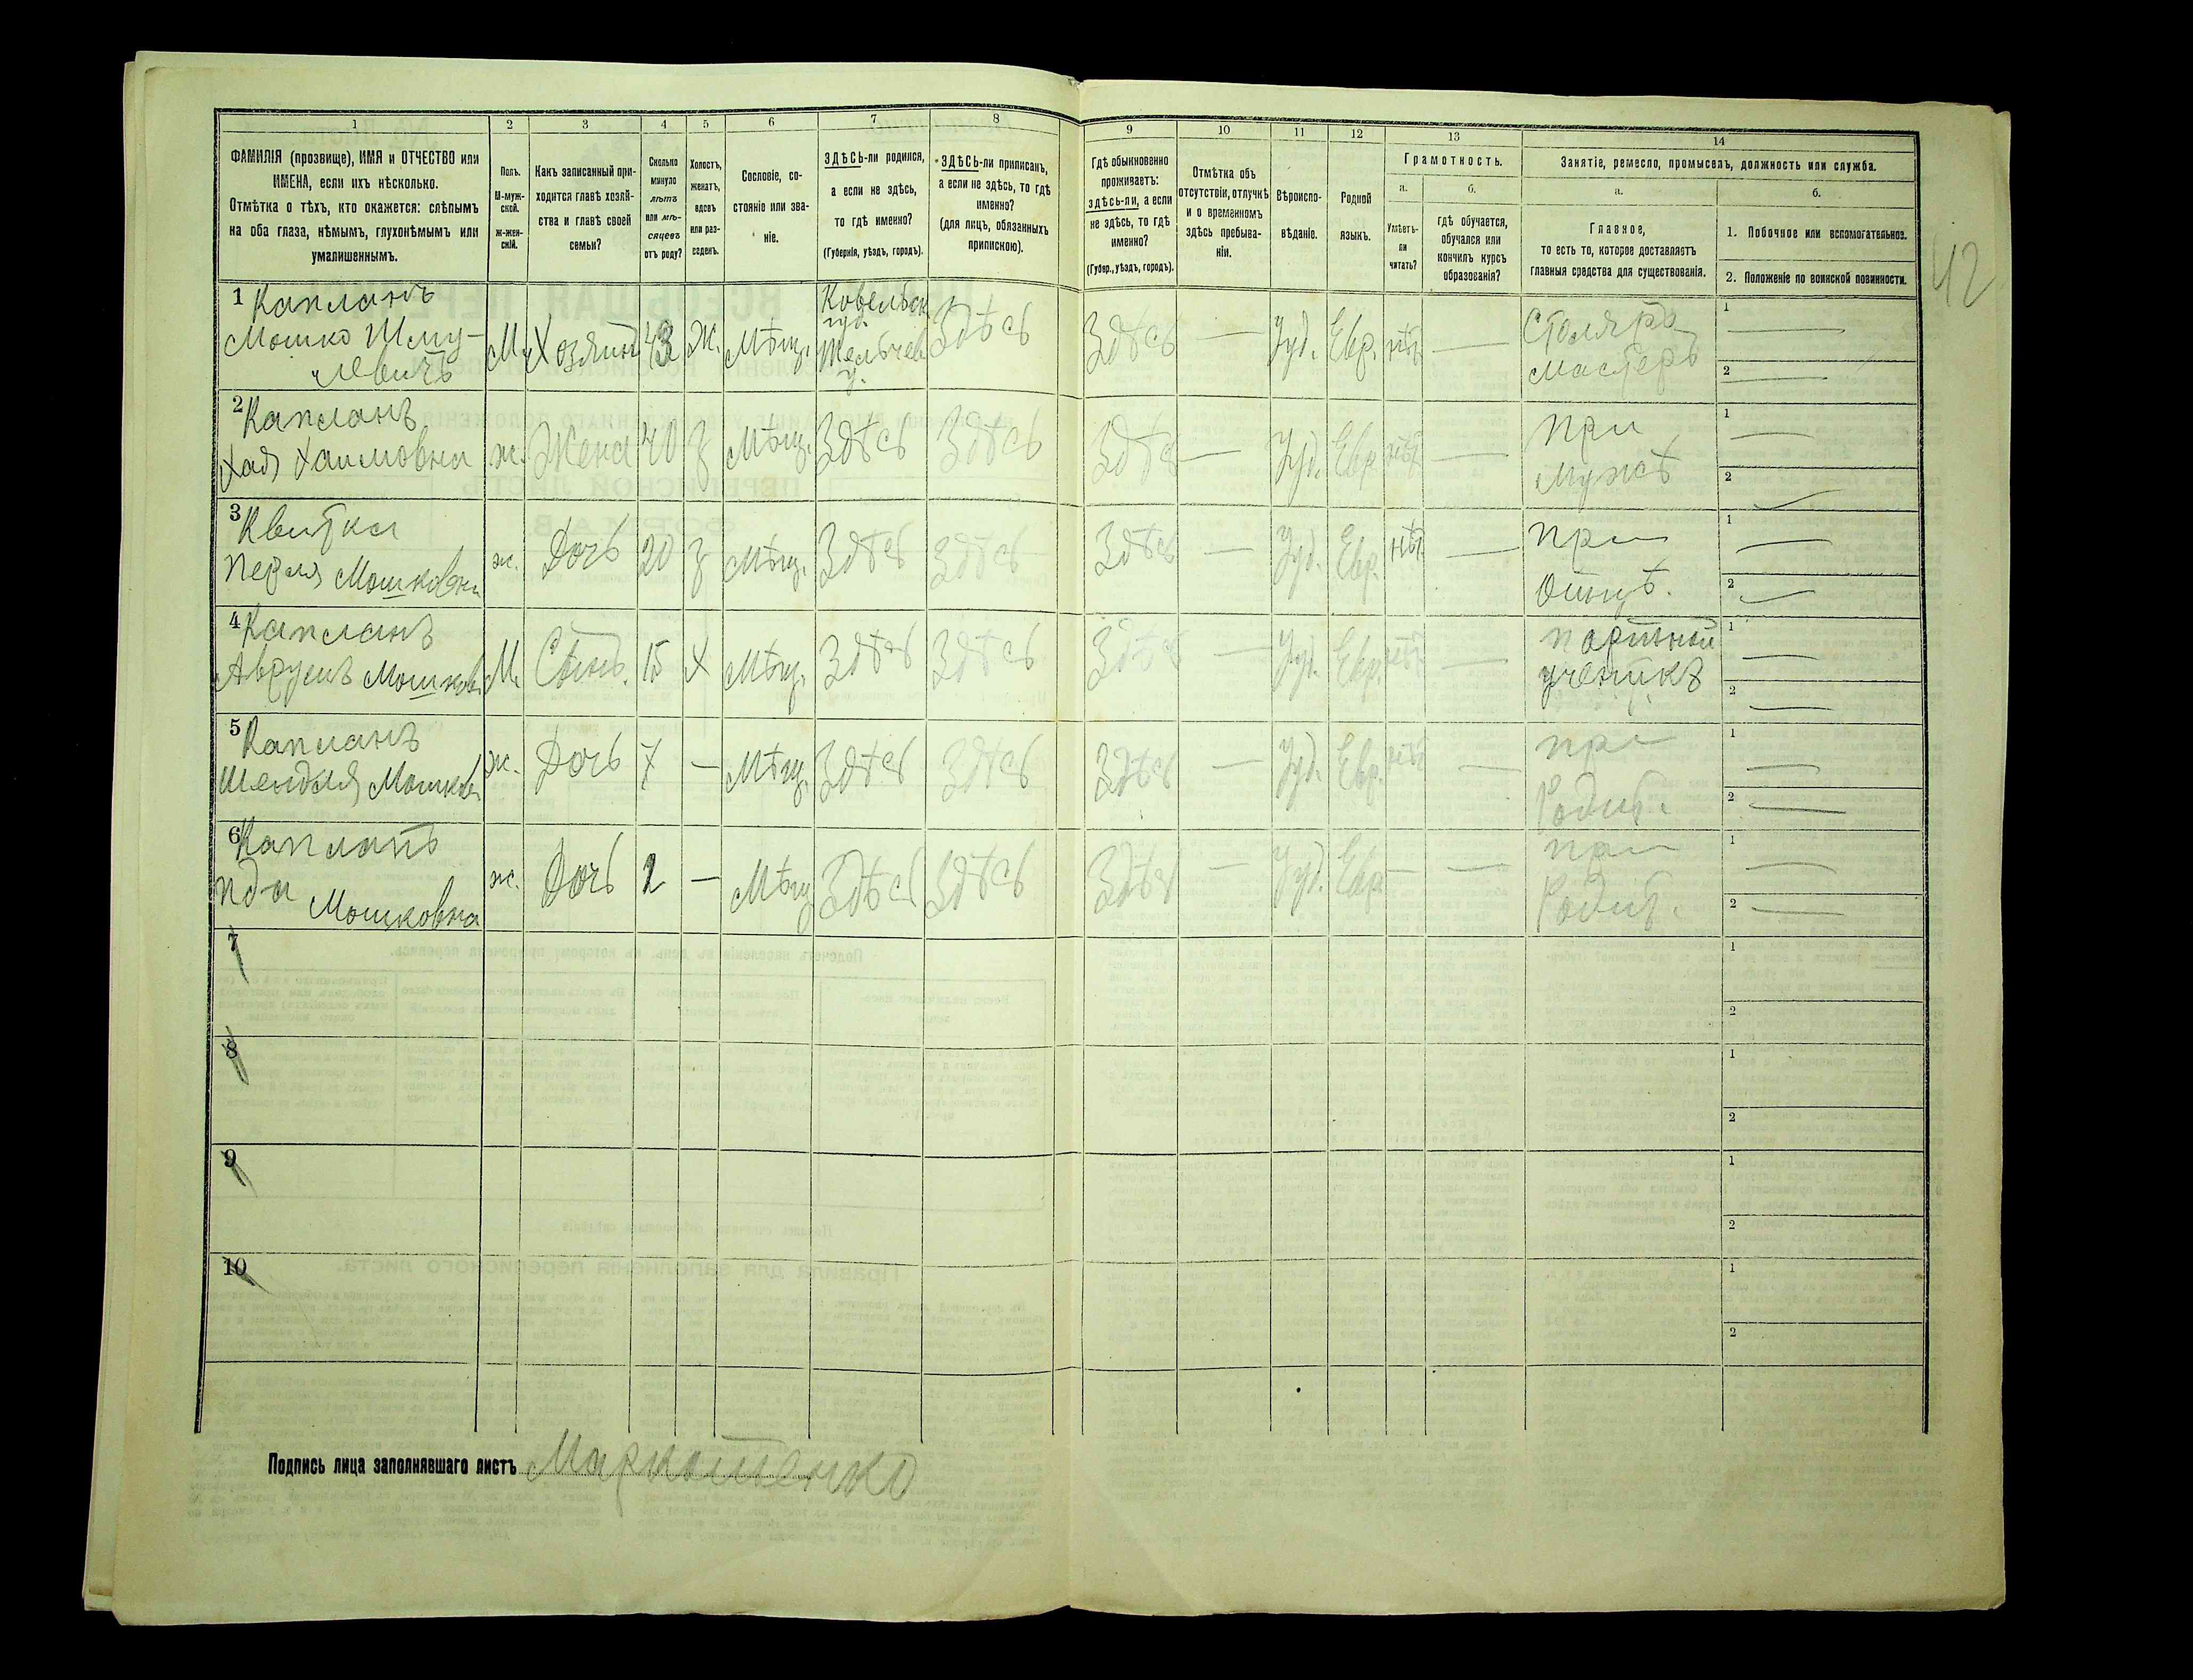 1 2 3 4 5 6 7 8 9 10 11 12 13 14
ФАМИЛІЯ (прозвище), ИМЯ и ОТЧЕСТВО или
ИМЕНА, если ихъ нѣсколько.
Отмѣтка о тѣхъ, кто окажется: слѣпымъ
на оба глаза, нѣмымъ, глухонѣмымъ или
умалишеннымъ.
Полъ.
М-муж-
ской.
Ж-жен-
скій.
Какъ записанный при-
ходится главѣ хозяй-
ства и главѣ своей
семьи?
Сколько
минуло
лѣтъ
или мѣ-
сяцевъ
отъ роду?
Холостъ,
женатъ,
вдовъ
или раз-
веденъ.
Сословіе, со-
стояніе или зва-
ніе.
ЗДѢСЬ-ли родился,
а если не здѣсь,
то гдѣ именно?
(Губернія, уѣздъ, городъ).
ЗДѢСЬ-ли приписанъ,
а если не здѣсь, то гдѣ
именно?
(для лицъ, обязанныхъ
припискою).
Гдѣ обыкновенно
проживаетъ:
здѣсь-ли, а если
не здѣсь, то гдѣ
именно?
(Губер., уѣздъ, городъ).
Отмѣтка объ
отсутствіи, отлучкѣ
и о временномъ
здѣсь пребыва-
ніи.
Вѣроиспо-
вѣданіе.
Родной
языкъ.
Грамотность.
а.
Умѣетъ-
ли
читать?
б.
гдѣ обучается,
обучался или
кончилъ курсъ
образованія?
Занятіе, ремесло, промыселъ, должность или служба.
а.
Главное,
то есть то, которое доставляетъ
главныя средства для существованія.
б.
1. Побочное или вспомогательное.
2. Положеніе по воинской повинности.
42
1 Капланъ
Мошко Шму-
левичъ
М. Хозяинъ 43 Ж. Мѣщ.
Здѣсь Здѣсь — Іуд. Евр. нѣт —
Столяръ
мастеръ
1 —
2 —
2 Капланъ
Хая Хаимовна
ж. Жена 40 З Мѣщ. Здѣсь Здѣсь Здѣсь — Іуд. Евр. нѣт —
При
мужѣ
1 —
2 —
3 Квитка
Перля Мошковна
ж. Дочь 20 З Мѣщ. Здѣсь Здѣсь Здѣсь — Іуд. Евр. нѣт —
При
Отцѣ.
1 —
2 —
4 Капланъ
Аврумъ Мошков.
М. Сынъ. 15 Х Мѣщ. Здѣсь Здѣсь Здѣсь — Іуд. Евр. нѣт —
портной
ученикъ
1 —
2 —
5 Капланъ
Шендля Мошков
ж. Дочь 7 — Мѣщ. Здѣсь Здѣсь Здѣсь — Іуд. Евр. нѣт —
при
Родит.
1 —
2 —
6 Капланъ
Мошковна
ж. Дочь — Мѣщ Здѣсь Здѣсь Здѣсь — Іуд. Евр — —
при
Родит.
1 —
2 —
7
1
2
8
1
2
9
1
2
10
1
2
Подпись лица заполнявшаго листъ